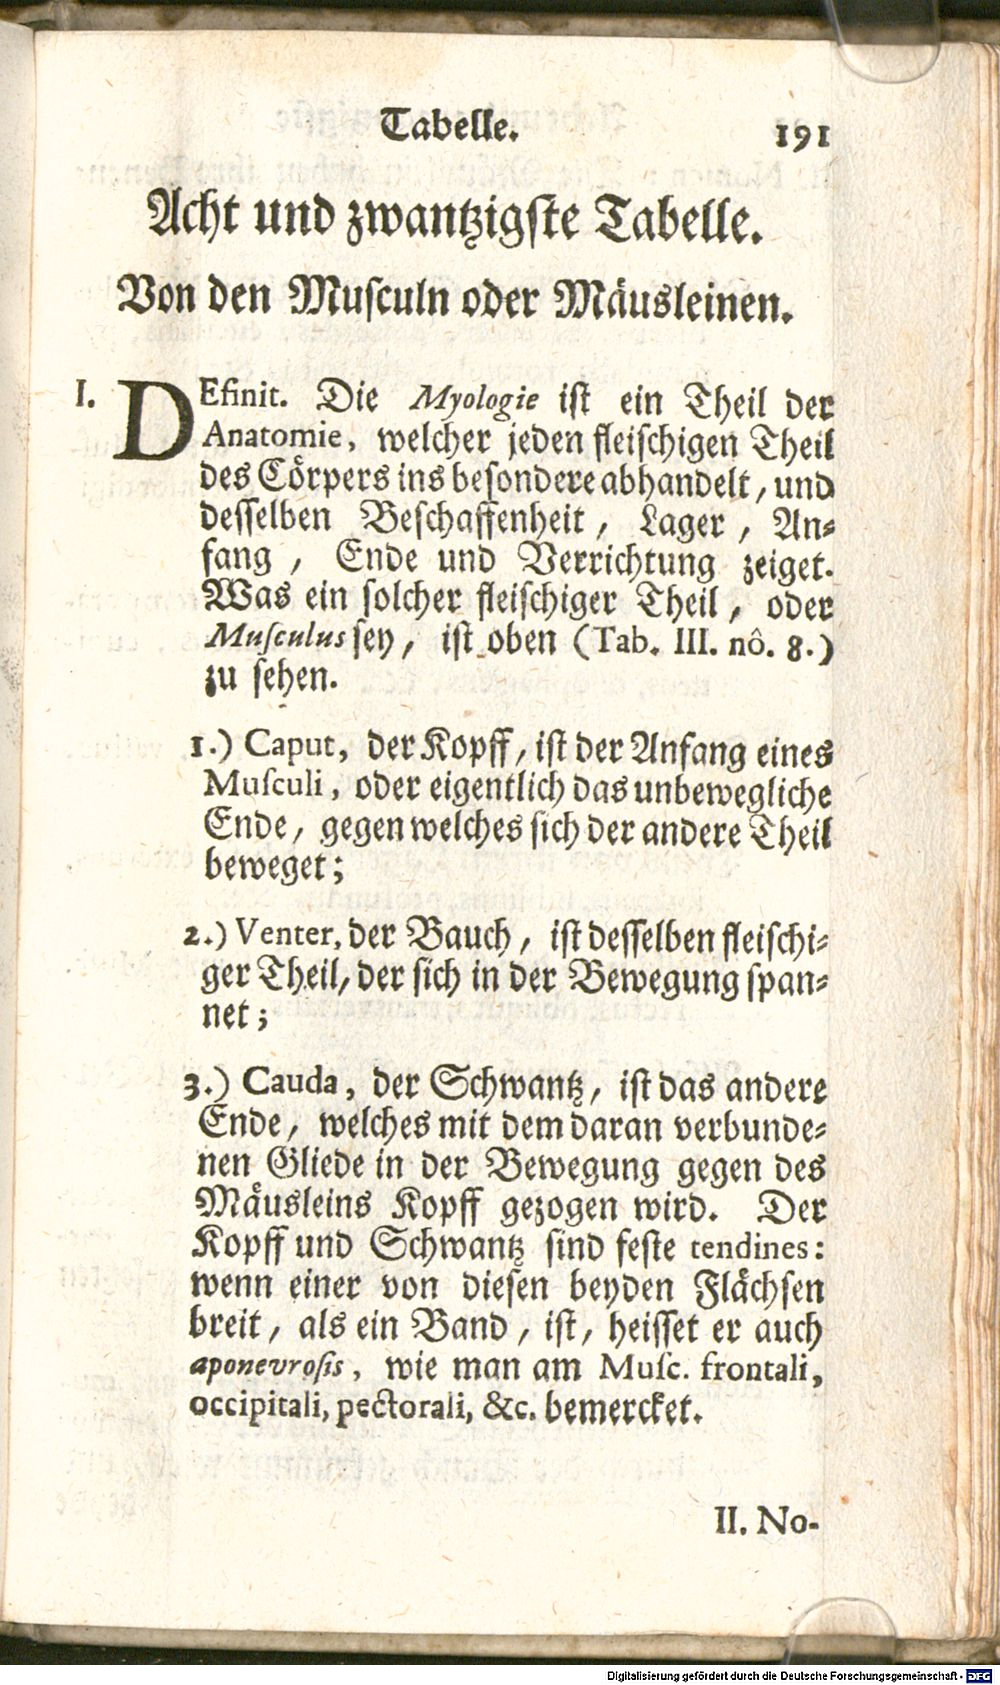 Tabelle. 191
Acht und zwantzigste Tabelle.
Von den Musculn oder Mäusleinen.
I. DEfinit. Die Myologie ist ein Theil der
Anatomie, welcher jeden fleischigen Theil
des Cörpers ins besondere abhandelt, und
desselben Beschaffenheit, Lager, An-
fang, Ende und Verrichtung zeiget.
Was ein solcher fleischiger Theil, oder
Musculus sey, ist oben (Tab. III. nô. 8.)
zu sehen.
1.) Caput, der Kopff, ist der Anfang eines
Musculi, oder eigentlich das unbewegliche
Ende, gegen welches sich der andere Theil
beweget;
2.) Venter, der Bauch, ist desselben fleischi-
ger Theil, der sich in der Bewegung span-
net;
3.) Cauda, der Schwantz, ist das andere
Ende, welches mit dem daran verbunde-
nen Gliede in der Bewegung gegen des
Mäusleins Kopff gezogen wird. Der
Kopff und Schwantz sind feste tendines:
wenn einer von diesen beyden Flächsen
breit, als ein Band, ist, heisset er auch
aponevrosis, wie man am Musc. frontali,
occipitali, pectorali, &c. bemercket.
II. No-
Digitalisierung gefördert durch die Deutsche Forschungsgemeinschaft - DFG